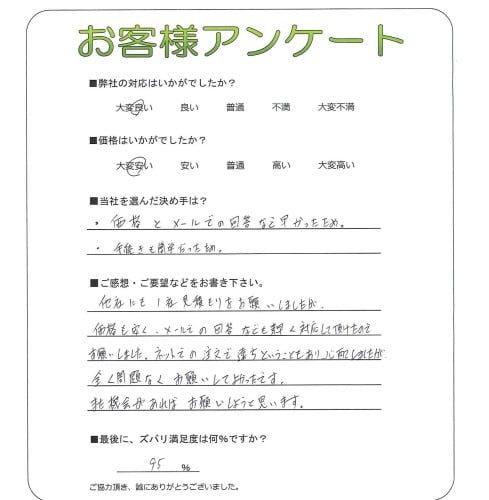 お客様アンケート
■弊社の対応はいかがでしたか？
大変良い 良い 普通 不満 大変不満
■価格はいかがでしたか？
大変安い 安い 普通 高い 大変高い
■当社を選んだ決め手は？
・価格とメールでの回答など早かったため。
・手続きも簡単だった為。
■ご感想・ご要望などをお書き下さい。
他社にも1社見積もりをお願いしましたが、
価格も安く、メールでの回答なども早く対応して頂けたので
お願いしました。ネットでの注文で ということもあり心配しましたが
全く問題なくお願いしてよかったです。
機会があればお願いしようと思います。
■最後に、ズバリ満足度は何%ですか？
95 %
ご協力頂き、誠にありがとうございました。